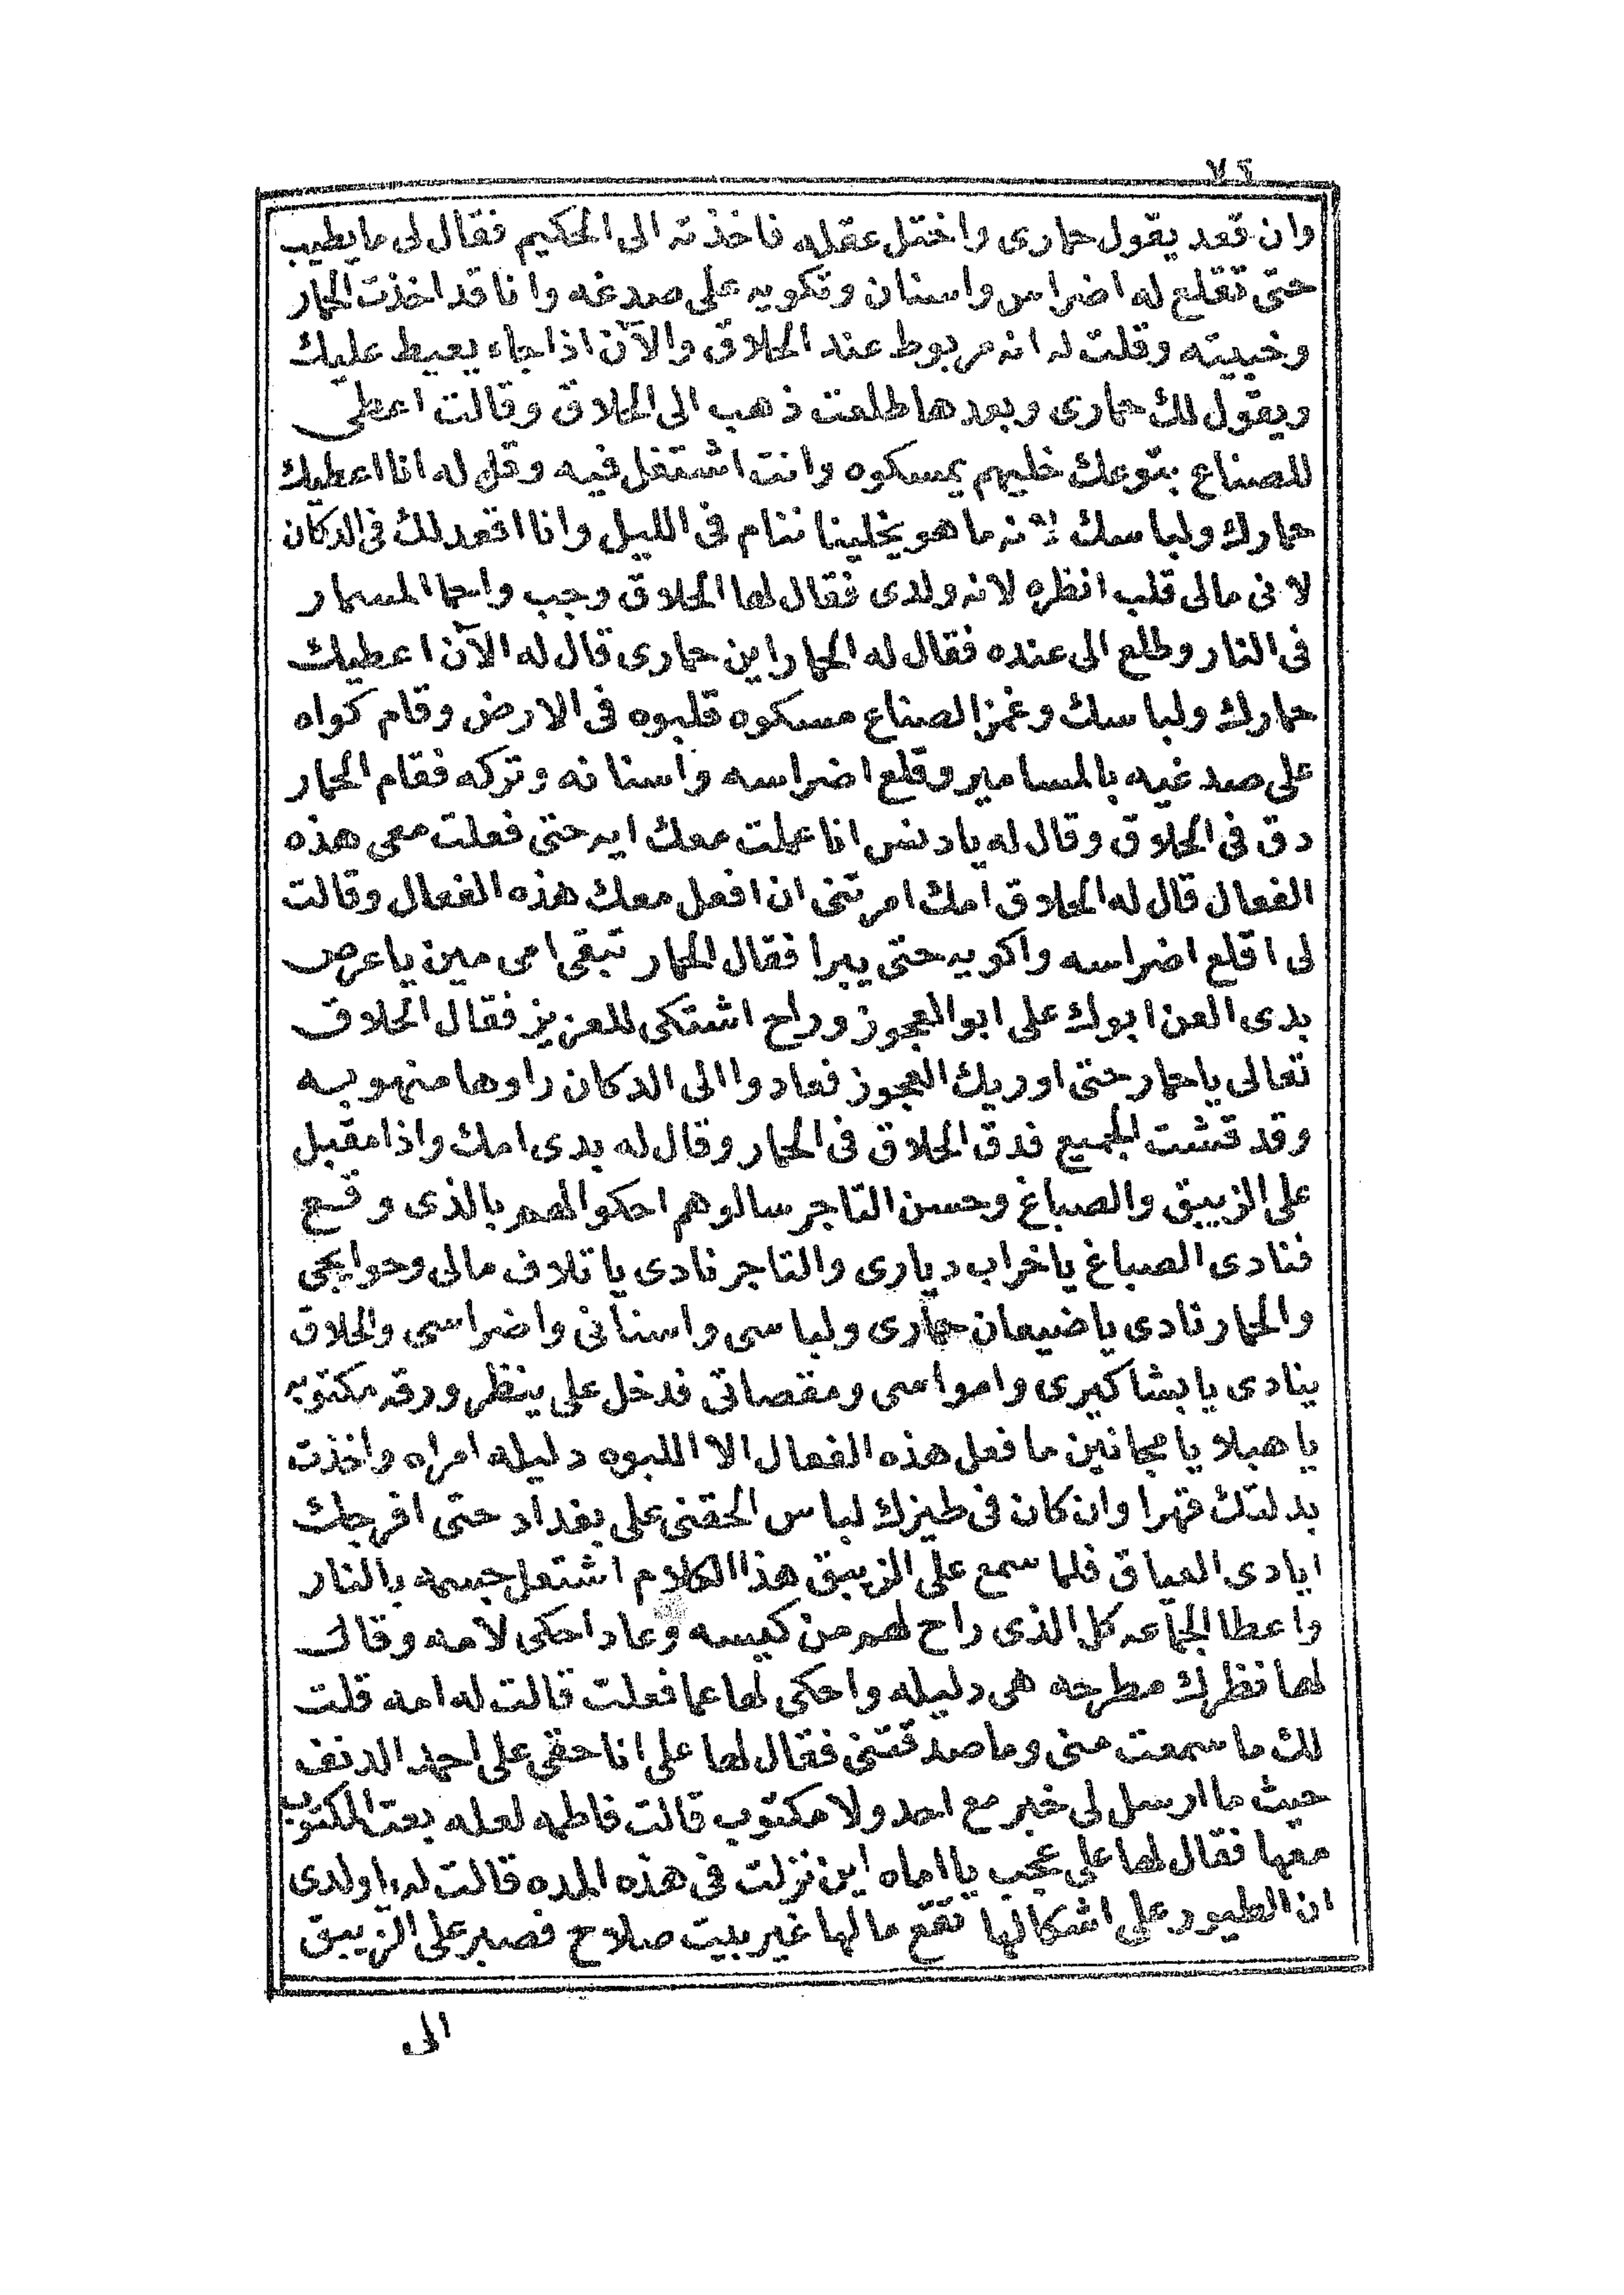 ٧٢
وان قعد يقول حمارى واختل عقله فاخذته الى الحكيم فقال لى ما يطيب
حتى تقلع له اضراس واسنان وتكويه على صدغه وانا قد اخذت الحمار
وخبيته وقلت له انه مربوط عند الحلاق والآن اذا جاء يعيط عليك
ويقول لك حمارى وبعدها طلعت ذهب الى الحلاق وقالت اعطى
للصناع بتوعك خليهم يمسكوه وانت اشتغل فيه وقل له انا اعطيك
حمارك ولباسك لانه ما هو يخلينا ننام فى الليل وانا اقعد لك فى الدكان
لانى مالى قلب انظره لانه ولدى فقال لها الحلاق وجب واحما المسمار
فى النار وطلع الى عنده فقال له الحمار اين حمارى قال له الآن اعطيك
حمارك ولباسك وغمز الصناع مسكوه قلبوه فى الارض وقام كواه
على صدغيه بالمسامير وقلع اضراسه واسنانه وتركه فقام الحمار
دق فى الحلاق وقال له يا دنس انا عملت معك ايه حتى فعلت معى هذه
الفعال قال له الحلاق امك امرتنى ان افعل معك هذه الفعال وقالت
لى اقلع اضراسه واكويه حتى يبرا فقال الحمار تبقى امى مين يا عرص
بدى العن ابوك على ابو العجوز وراح اشتكى للعزيز فقال الحلاق
تعالى يا حمار حتى اوريك العجوز فعادوا الى الدكان راوها منهوبه
وقد قشت الجميع فدق الحلاق فى الحمار وقال له بدى امك واذا مقبل
على الزيبق والصباغ وحسن التاجر سالوهم احكوا لهم بالذى وقع
فنادى الصباغ يا خراب ديارى والتاجر نادى يا تلاف مالى وحوايجى
والحمار نادى يا ضيعان حمارى ولباسى واسنانى واضراسى والحلاق
ينادى يا بشاكيرى وامواسى ومقصاتى فدخل على ينظر ورقه مكتوبه
يا هبلا يا مجانين ما فعل هذه الفعال الا اللبوه دليله امراه واخذت
بدلتك قهرا وان كان فى طيزك لباس الحقنى على بغداد حتى افرجك
ايادى العياق فلما سمع على الزيبق هذا الكلام اشتعل جسمه بالنار
واعطا الجماعه كل الذى راح لهم من كيسه وعاد احكى لامه وقال
لها نظرك مطرحه هى دليله واحكى لها عما فعلت قالت له امه قلت
لك ما سمعت منى وما صدقتنى فقال لها على انا حقى على احمد الدنف
حيث ما ارسل لى خبر مع احد ولا مكتوب قالت فاطمه لعله بعت المكتوب
معها فقال لها على عجب يا اماه اين نزلت فى هذه المده قالت له يا ولدى
ان الطيور على اشكالها تقع ما لها غير بيت صلاح فصبر على الزيبق
الى